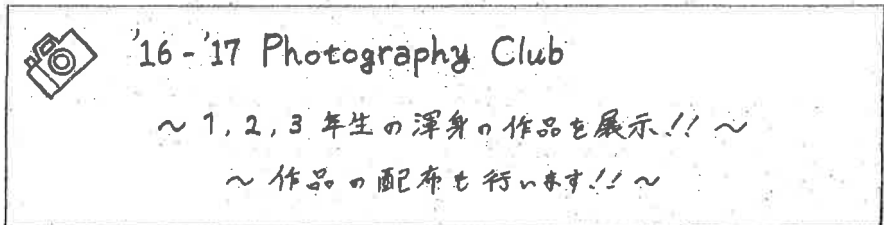 '16-'17 Photography Club
～1,2,3年生の渾身の作品を展示!!～
～作品の配布も行います!!～